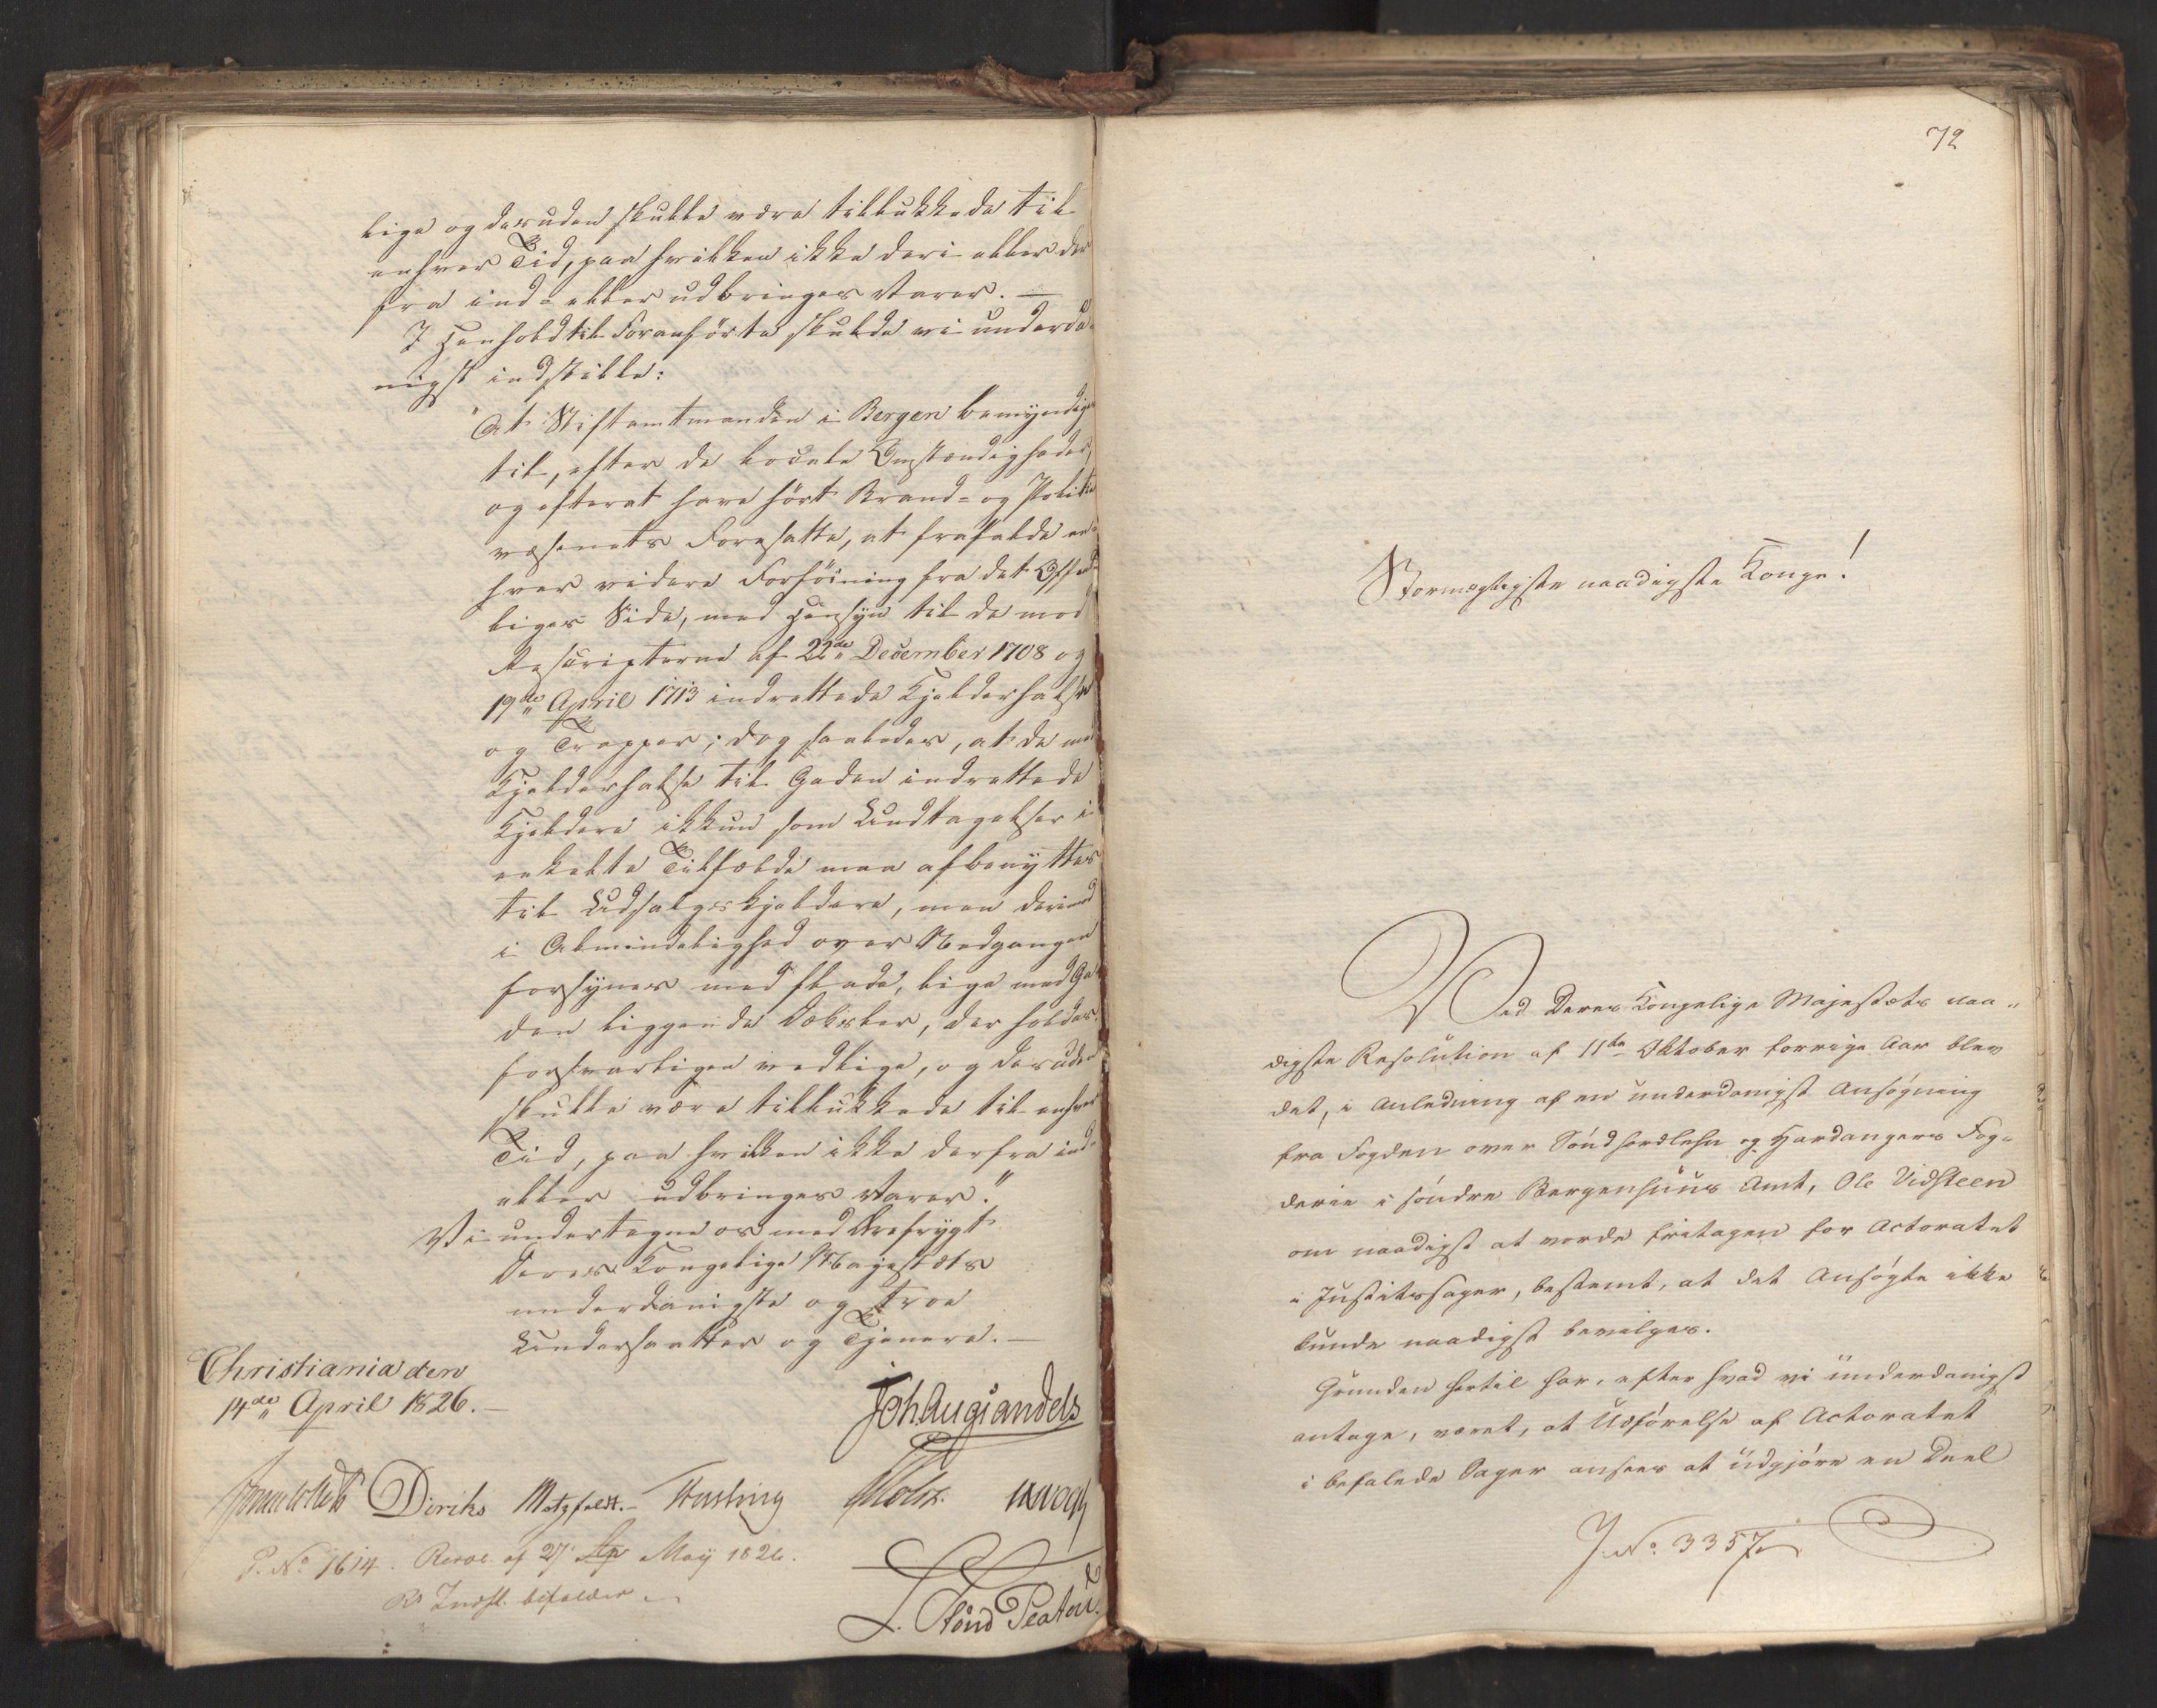 lige og desuden skulle være tillukkede til
enhver Tid, paa hvilken ikke deri eller der
fra ind- eller udbringes Varer. —
I Henhold til Foranførte skulde vi underda-
nigst indstille:
"At Stiftamtmanden i Bergen bemyndiges
til, efter de locale Omstændigheder,
og efterat have hørt Brand- og Politie
væsenets Foresatte, at frafalde en-
hver videre Forføining fra det Offent-
liges Side, med Hensyn til de mod
Rescripterne af 22de December 1708 og
19de April 1713 indrettede Kjelderhalse
og Trapper; dog saaledes, at de med
Kjelderhalse til Gaden indrettede
Kjeldere ikkun som Undtagelser i
enkelte Tilfælde maa afbenyttes
til Udsalgskjeldere, men derimod
i Almindelighed over Nedgangen
forsynes med flade, lige med Ga-
den liggende Dæksler, der holdes
forsvarligen vedlige, og desuden
skulle være tillukkede til enhver
Tid, paa hvilken ikke derfra ind-
eller udbringes Varer."
Vi undertegne os med Ærefrygt
Deres Kongelige Majestæts
underdanigste og troe
Undersaatter og Tjenere. —
Christiania den
14de April 1826. —
Joh Aug Sandels
Diriks Motzfeldt. Fasting Holst.
P. No 1614. Resol. af 27 Ap May 1826.
Rs Indst. bifaldes
72
Stormægtigste naadigste Konge!
Ved Deres Kongelige Majestæts naa-
digste Resolution af 11te Oktober forrige Aar blev
det, i Anledning af en underdanigst Ansøgning
fra Fogden over Søndhordlehn og Hardangers Fog-
derie i søndre Bergenhuus Amt, Ole Vidsteen
om naadigst at vorde fritagen for Actoratet
i Justitssager, bestemt, at det Ansøgte ikke
kunde naadigst bevilges.
Grunden hertil har, efter hvad vi underdanigst
antage, været, at Udførelse af Actoratet
i befalede Sager ansees at udgjøre en Deel
J. No. 3357